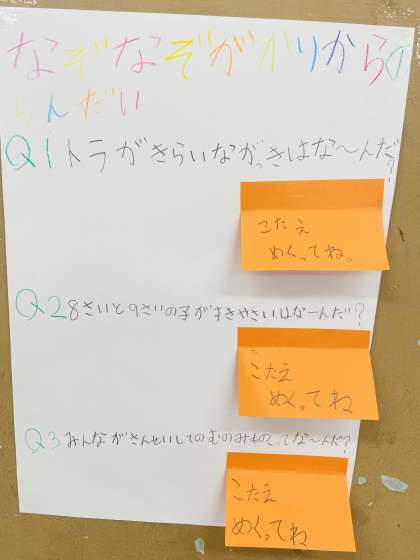 なぞなぞがかりからの
もんだい
Q1 トラがきらいながっきはな〜んだ?
こたえ
めくってね。
Q2 8さいと9さいの子がすきやさいはなーんだ?
こたえ
めくってね
Q3 みんながさんせいしてのむのみものってな〜んだ?
こたえ
めくってね